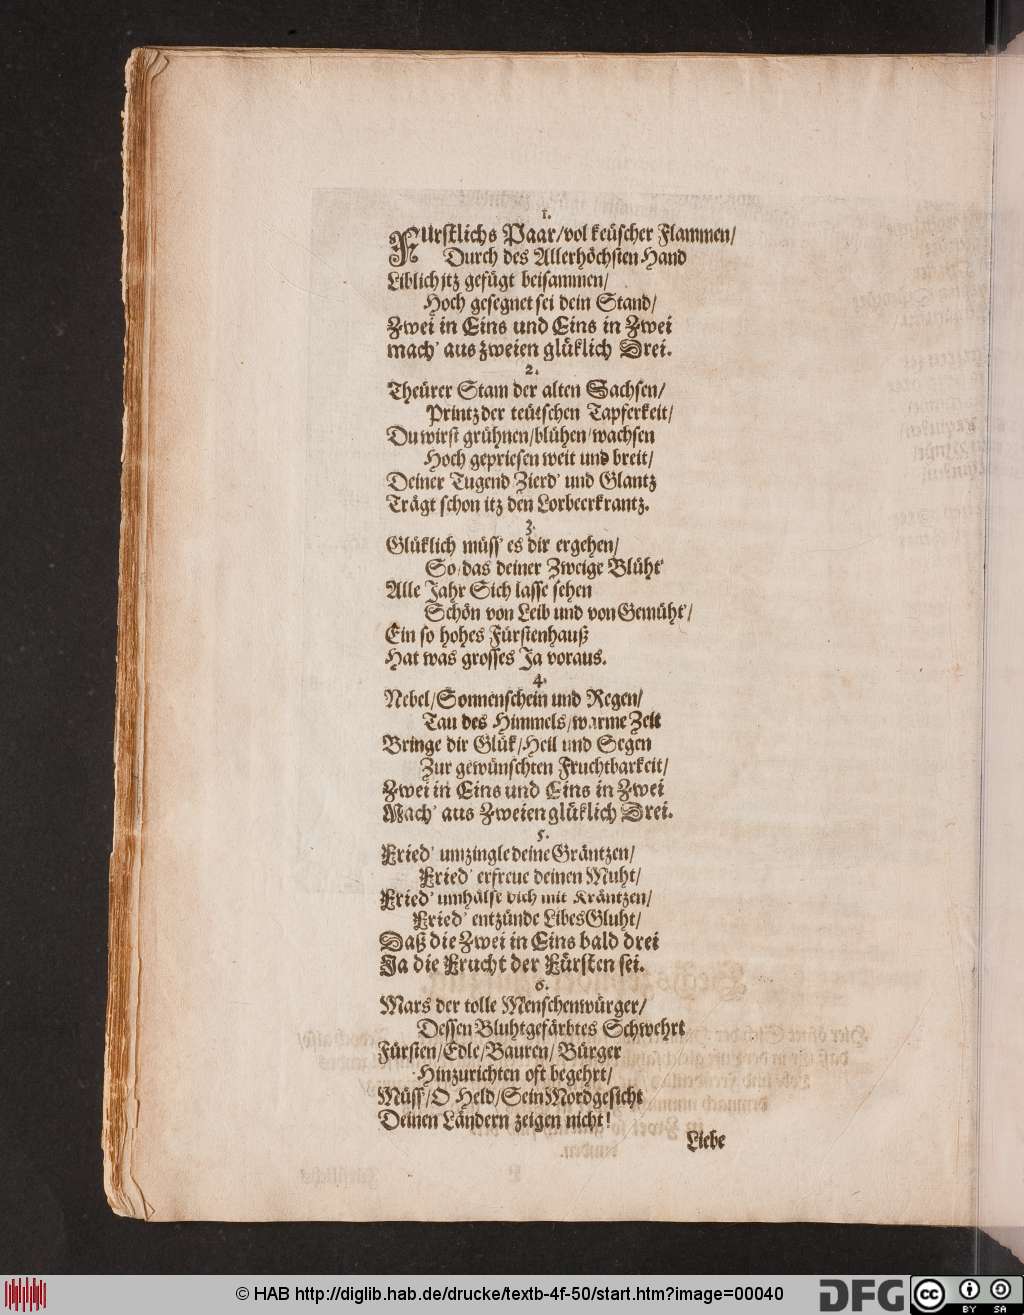 1.
Fürstlichs Paar/vol keüscher Flammen/
Durch des Allerhöchsten Hand
Liblich itz gefügt beisammen/
Hoch gesegnet sei dein Stand/
Zwei in Eins und Eins in Zwei
mach' aus zweien glüklich Drei.
2.
Theürer Stam der alten Sachsen/
Printz der teütschen Tapferkeit/
Du wirst grühnen/blühen/wachsen
Hoch gepriesen weit und breit/
Deiner Tugend Zierd' und Glantz
Trägt schon itz den Lorbeerkrantz.
3.
Glüklich müss' es dir ergehen/
So/das deiner Zweige Blüht'
Alle Jahr Sich lasse sehen
Schön von Leib und von Gemüht'/
Ein so hohes Fürstenhauß
Hat was grosses Ja voraus.
4.
Nebel/Sonnenschein und Regen/
Tau des Himmels/warme Zeit
Bringe dir Glük/Heil und Segen
Zur gewünschten Fruchtbarkeit/
Zwei in Eins und Eins in Zwei
Mach' aus Zweien glüklich Drei.
5.
Fried' umzingle deine Gräntzen/
Fried' erfreue deinen Muht/
Fried' umhälse dich mit Kräntzen/
Fried' entzünde Libes Gluht/
Daß die Zwei in Eins bald drei
Ja die Frucht der Fürsten sei.
6.
Mars der tolle Menschenwürger/
Dessen Bluhtgefärbtes Schwehrt
Fürsten/Edle/Bauren/Bürger
Hinzurichten oft begehrt/
Müss'/O Held/Sein Mordgesicht
Deinen Ländern zeigen nicht!
Liebe
© HAB http://diglib.hab.de/drucke/textb-4f-50/start.htm?image=00040
DFG
cc
BY SA